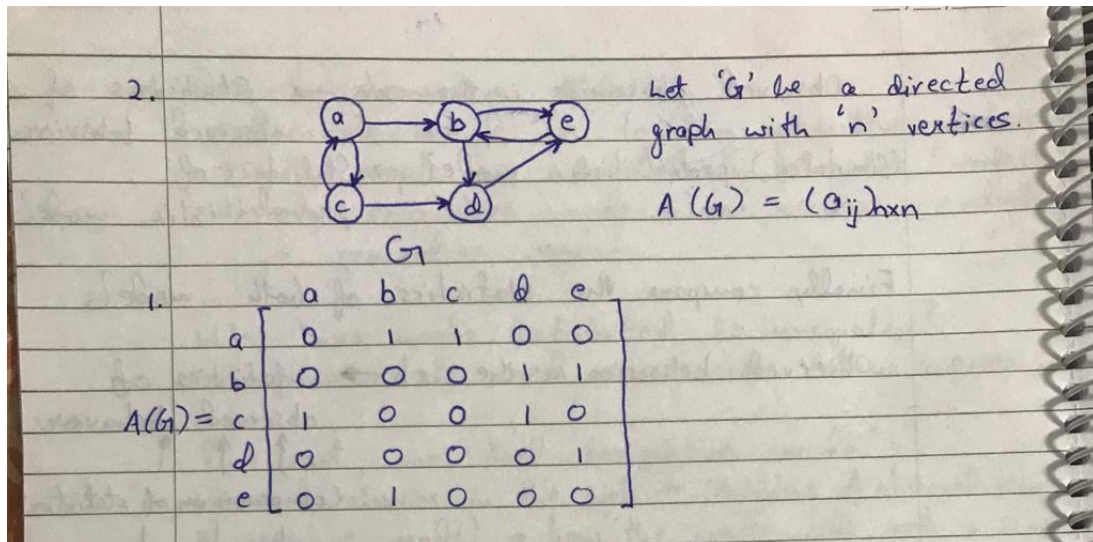 2.
Let 'G' be a directed
graph with 'n' vertices.
a b e
c d
A(G) = (aij)nxn
G
1.
a b c d e
a 0 1 1 0 0
b 0 0 0 1 1
A(G) = c 1 0 0 1 0
d 0 0 0 0 1
e 0 1 0 0 0